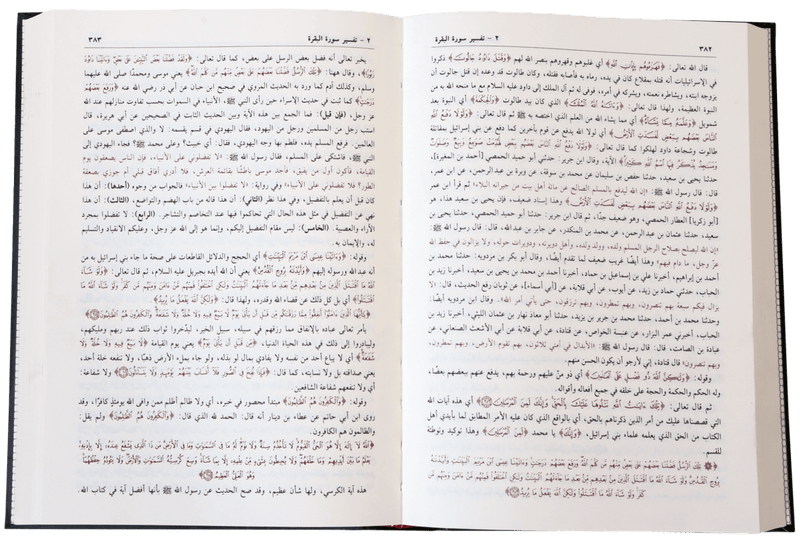 ٢ - تفسير سورة البقرة ٣٨٢
قال الله تعالى: ﴿فَهَزَمُوهُم بِإِذْنِ اللَّهِ﴾ أي غلبوهم وقهروهم بنصر الله لهم ﴿وَقَتَلَ دَاوُدُ جَالُوتَ﴾ ذكروا
في الإسرائيليات أنه قتله بمقلاع كان في يده، رماه به فأصابه فقتله، وكان طالوت قد وعده إن قتل جالوت أن
يزوجه ابنته، ويشاطره نعمته، ويشركه في أمره، فوفى له ثم آل الملك إلى داود عليه السلام مع ما منحه الله به من
النبوة العظيمة، ولهذا قال تعالى: ﴿وَآتَاهُ اللَّهُ الْمُلْكَ﴾ الذي كان بيد طالوت ﴿وَالْحِكْمَةَ﴾ أي النبوة بعد
شمويل ﴿وَعَلَّمَهُ مِمَّا يَشَاءُ﴾ أي مما يشاء الله من العلم الذي اختصه به ﷺ ثم قال تعالى: ﴿وَلَوْلَا دَفْعُ اللَّهِ
النَّاسَ بَعْضَهُم بِبَعْضٍ لَّفَسَدَتِ الْأَرْضُ﴾ أي لولا الله يدفع عن قوم بآخرين كما دفع عن بني إسرائيل بمقاتلة
طالوت وشجاعة داود لهلكوا كما قال تعالى: ﴿وَلَوْلَا دَفْعُ اللَّهِ النَّاسَ بَعْضَهُم بِبَعْضٍ لَّهُدِّمَتْ صَوَامِعُ وَبِيَعٌ وَصَلَوَاتٌ
وَمَسَاجِدُ يُذْكَرُ فِيهَا اسْمُ اللَّهِ كَثِيرًا﴾ الآية، وقال ابن جرير: حدثني أبو حميد الحمصي [أحمد بن المغيرة]،
حدثنا يحيى بن سعيد، حدثنا حفص بن سليمان عن محمد بن سوقة، عن وبرة بن عبد الرحمن، عن ابن عمر،
قال: قال رسول الله ﷺ: «إن الله ليدفع بالمسلم الصالح عن مائة أهل بيت من جيرانه البلاء» ثم قرأ ابن عمر
﴿وَلَوْلَا دَفْعُ اللَّهِ النَّاسَ بَعْضَهُم بِبَعْضٍ لَّفَسَدَتِ الْأَرْضُ﴾ وهذا إسناد ضعيف، فإن يحيى بن سعيد هذا، هو
[أبو زكريا] العطار الحمصي، وهو ضعيف جدًا، ثم قال ابن جرير: حدثنا أبو حميد الحمصي، حدثنا يحيى بن
سعيد، حدثنا عثمان بن عبد الرحمن، عن محمد بن المنكدر، عن جابر بن عبد الله، قال: قال رسول الله ﷺ
«إن الله ليصلح بصلاح الرجل المسلم ولده، وولد ولده، وأهل دويرته، ودويرات حوله، ولا يزالون في حفظ الله
عزّ وجل، ما دام فيهم» وهذا أيضًا غريب ضعيف لما تقدم أيضًا. وقال أبو بكر بن مردويه: حدثنا محمد بن
أحمد بن إبراهيم، أخبرنا علي بن إسماعيل بن حماد، أخبرنا أحمد بن محمد بن يحيى بن سعيد، أخبرنا زيد بن
الحباب، حدثني حماد بن زيد، عن أيوب، عن أبي قلابة، عن [أبي أسماء]، عن ثوبان رفع الحديث، قال: «لا
يزال فيكم سبعة بهم تنصرون، وبهم تمطرون، وبهم ترزقون، حتى يأتي أمر الله». وقال ابن مردويه أيضًا:
وحدثنا محمد بن أحمد، حدثنا محمد بن جرير بن يزيد، حدثنا أبو معاذ نهار بن عثمان الليثي، أخبرنا زيد بن
الحباب، أخبرني عمر البزار، عن عنبسة الخواص، عن قتادة، عن أبي قلابة عن أبي الأشعث الصنعاني، عن
عبادة بن الصامت، قال: قال رسول الله ﷺ: «الأبدال في أمتي ثلاثون، بهم تقوم الأرض، وبهم تمطرون،
وبهم تنصرون» قال قتادة، إني لأرجو أن يكون الحسن منهم.
وقوله: ﴿وَلَٰكِنَّ اللَّهَ ذُو فَضْلٍ عَلَى الْعَالَمِينَ﴾ أي ذو منّ عليهم ورحمة بهم، يدفع عنهم ببعضهم بعضًا،
وله الحكم والحكمة والحجة على خلقه في جميع أفعاله وأقواله.
ثم قال تعالى: ﴿تِلْكَ آيَاتُ اللَّهِ نَتْلُوهَا عَلَيْكَ بِالْحَقِّ وَإِنَّكَ لَمِنَ الْمُرْسَلِينَ﴾ أي هذه آيات الله
التي قصصناها عليك من أمر الذين ذكرناهم بالحق، أي بالواقع الذي كان عليه الأمر المطابق لما بأيدي أهل
الكتاب من الحق الذي يعلمه علماء بني إسرائيل، ﴿وَإِنَّكَ﴾ يا محمد ﴿لَمِنَ الْمُرْسَلِينَ﴾ وهذا توكيد وتوطئة
للقسم.
﴿تِلْكَ الرُّسُلُ فَضَّلْنَا بَعْضَهُمْ عَلَىٰ بَعْضٍ مِّنْهُم مَّن كَلَّمَ اللَّهُ وَرَفَعَ بَعْضَهُمْ دَرَجَاتٍ وَآتَيْنَا عِيسَى ابْنَ مَرْيَمَ الْبَيِّنَاتِ وَأَيَّدْنَاهُ
بِرُوحِ الْقُدُسِ وَلَوْ شَاءَ اللَّهُ مَا اقْتَتَلَ الَّذِينَ مِن بَعْدِهِم مِّن بَعْدِ مَا جَاءَتْهُمُ الْبَيِّنَاتُ وَلَٰكِنِ اخْتَلَفُوا فَمِنْهُم مَّنْ آمَنَ وَمِنْهُم مَّن
كَفَرَ وَلَوْ شَاءَ اللَّهُ مَا اقْتَتَلُوا وَلَٰكِنَّ اللَّهَ يَفْعَلُ مَا يُرِيدُ﴾
٢ - تفسير سورة البقرة ٣٨٣
يخبر تعالى أنه فضل بعض الرسل على بعض، كما قال تعالى: ﴿وَلَقَدْ فَضَّلْنَا بَعْضَ النَّبِيِّينَ عَلَىٰ بَعْضٍ وَآتَيْنَا دَاوُدَ
زَبُورًا﴾، وقال ههنا: ﴿تِلْكَ الرُّسُلُ فَضَّلْنَا بَعْضَهُمْ عَلَىٰ بَعْضٍ مِّنْهُم مَّن كَلَّمَ اللَّهُ﴾ يعني موسى ومحمدًا صلى الله عليهما
وسلم، وكذلك آدم كما ورد به الحديث المروي في صحيح ابن حبان عن أبي ذر رضي الله عنه ﴿وَرَفَعَ بَعْضَهُمْ
دَرَجَاتٍ﴾ كما ثبت في حديث الإسراء حين رأى النبي ﷺ، الأنبياء في السموات بحسب تفاوت منازلهم عند الله
عز وجل، (فإن قيل): فما الجمع بين هذه الآية وبين الحديث الثابت في الصحيحين عن أبي هريرة، قال:
استب رجل من المسلمين ورجل من اليهود، فقال اليهودي في قسم يقسمه: لا والذي اصطفى موسى على
العالمين. فرفع المسلم يده، فلطم بها وجه اليهودي، فقال: أي خبيث؟ وعلى محمد ﷺ؟ فجاء اليهودي إلى
النبي ﷺ، فاشتكى على المسلم، فقال رسول الله ﷺ: «لا تفضلوني على الأنبياء، فإن الناس يصعقون يوم
القيامة، فأكون أول من يفيق، فأجد موسى باطشًا بقائمة العرش، فلا أدري أفاق قبلي أم جوزي بصعقة
الطور؟ فلا تفضلوني على الأنبياء» وفي رواية: «لا تفضلوا بين الأنبياء» فالجواب من وجوه (أحدها): أن هذا
كان قبل أن يعلم بالتفضيل، وفي هذا نظر (الثاني): أن هذا قاله من باب الهضم والتواضع، (الثالث): أن هذا
نهي عن التفضيل في مثل هذه الحال التي تحاكموا فيها عند التخاصم والتشاجر. (الرابع): لا تفضلوا بمجرد
الآراء والعصبية. (الخامس): ليس مقام التفضيل إليكم، وإنما هو إلى الله عز وجل، وعليكم الانقياد والتسليم
له، والإيمان به.
وقوله: ﴿وَآتَيْنَا عِيسَى ابْنَ مَرْيَمَ الْبَيِّنَاتِ﴾ أي الحجج والدلائل القاطعات على صحة ما جاء بني إسرائيل به من
أنه عبد الله ورسوله إليهم ﴿وَأَيَّدْنَاهُ بِرُوحِ الْقُدُسِ﴾ يعني أن الله أيده بجبريل عليه السلام، ثم قال تعالى: ﴿وَلَوْ شَاءَ
اللَّهُ مَا اقْتَتَلَ الَّذِينَ مِن بَعْدِهِم مِّن بَعْدِ مَا جَاءَتْهُمُ الْبَيِّنَاتُ وَلَٰكِنِ اخْتَلَفُوا فَمِنْهُم مَّنْ آمَنَ وَمِنْهُم مَّن كَفَرَ وَلَوْ شَاءَ اللَّهُ مَا
اقْتَتَلُوا﴾ أي بل كل ذلك عن قضاء الله وقدره، ولهذا قال: ﴿وَلَٰكِنَّ اللَّهَ يَفْعَلُ مَا يُرِيدُ﴾
﴿يَا أَيُّهَا الَّذِينَ آمَنُوا أَنفِقُوا مِمَّا رَزَقْنَاكُم مِّن قَبْلِ أَن يَأْتِيَ يَوْمٌ لَّا بَيْعٌ فِيهِ وَلَا خُلَّةٌ وَلَا شَفَاعَةٌ وَالْكَافِرُونَ هُمُ الظَّالِمُونَ﴾
يأمر تعالى عباده بالإنفاق مما رزقهم في سبيله، سبيل الخير، ليدّخروا ثواب ذلك عند ربهم ومليكهم،
وليبادروا إلى ذلك في هذه الحياة الدنيا، ﴿مِّن قَبْلِ أَن يَأْتِيَ يَوْمٌ﴾ يعني يوم القيامة ﴿لَّا بَيْعٌ فِيهِ وَلَا خُلَّةٌ وَلَا
شَفَاعَةٌ﴾ أي لا يباع أحد من نفسه ولا يفادي بمال لو بذله، ولو جاء بملء الأرض ذهبًا، ولا تنفعه خلة أحد،
يعني صداقته بل ولا نسابته، كما قال: ﴿فَإِذَا نُفِخَ فِي الصُّورِ فَلَا أَنسَابَ بَيْنَهُمْ يَوْمَئِذٍ وَلَا يَتَسَاءَلُونَ﴾ ولا شفاعة:
أي ولا تنفعهم شفاعة الشافعين.
وقوله: ﴿وَالْكَافِرُونَ هُمُ الظَّالِمُونَ﴾ مبتدأ محصور في خبره، أي ولا ظالم أظلم ممن وافى الله يومئذٍ كافرًا، وقد
روى ابن أبي حاتم عن عطاء بن دينار أنه قال: الحمد لله الذي قال: ﴿وَالْكَافِرُونَ هُمُ الظَّالِمُونَ﴾ ولم يقل:
والظالمون هم الكافرون.
﴿اللَّهُ لَا إِلَٰهَ إِلَّا هُوَ الْحَيُّ الْقَيُّومُ لَا تَأْخُذُهُ سِنَةٌ وَلَا نَوْمٌ لَّهُ مَا فِي السَّمَاوَاتِ وَمَا فِي الْأَرْضِ مَن ذَا الَّذِي يَشْفَعُ عِندَهُ إِلَّا بِإِذْنِهِ
يَعْلَمُ مَا بَيْنَ أَيْدِيهِمْ وَمَا خَلْفَهُمْ وَلَا يُحِيطُونَ بِشَيْءٍ مِّنْ عِلْمِهِ إِلَّا بِمَا شَاءَ وَسِعَ كُرْسِيُّهُ السَّمَاوَاتِ وَالْأَرْضَ وَلَا يَئُودُهُ حِفْظُهُمَا
وَهُوَ الْعَلِيُّ الْعَظِيمُ﴾
هذه آية الكرسي، ولها شأن عظيم، وقد صح الحديث عن رسول الله ﷺ بأنها أفضل آية في كتاب الله.